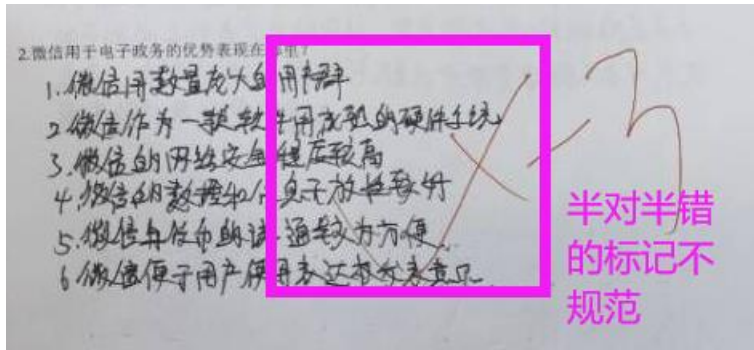 2.微信用于电子政务的优势表现在哪里?
1.微信用数量庞大的用户群
2.微信作为一款软件用成熟的硬件系统。
3.微信的网络安全程度较高
4.微信的数据和信息开放性较好
5.微信与政府的沟通较为方便.
6微信便于用户使用表达和发表意见.
X-3
半对半错
的标记不
规范